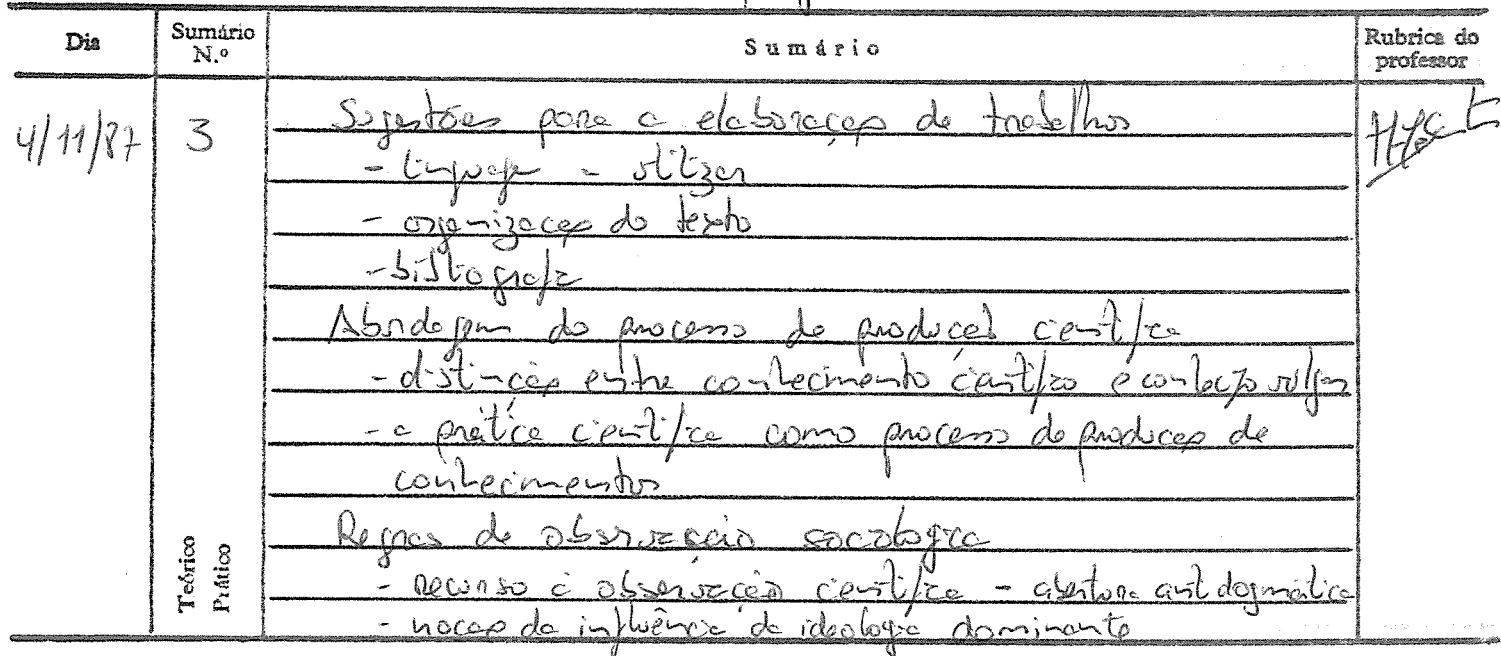 Dia Sumário N.º Sumário Rubrica do professor
4/11/87 3 Sugestões para a elaboração de trabalhos
- linguagem a utilizar
- organização do texto
- bibliografia
Abordagem do processo de produção científica
- distinção entre conhecimento científico e conhecto vulgar
- a prática científica como processo de produção de
conhecimentos
Regras de observação sociológica
- recurso à observação científica - abertura anti dogmática
- noção da influência da ideologia dominante
Teórico
Prático